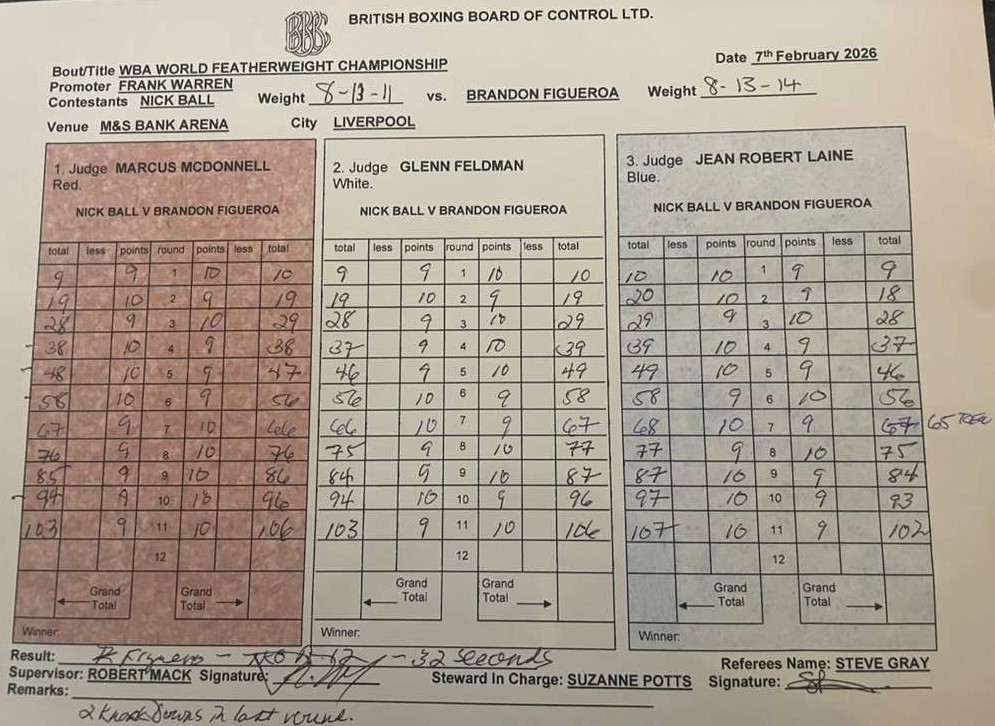 BBBC
BRITISH BOXING BOARD OF CONTROL LTD.
Bout/Title WBA WORLD FEATHERWEIGHT CHAMPIONSHIP Date 7th February 2026
Promoter FRANK WARREN
Contestants NICK BALL Weight 8-13-11 vs. BRANDON FIGUEROA Weight 8-13-14
Venue M&S BANK ARENA City LIVERPOOL
1. Judge MARCUS MCDONNELL 2. Judge GLENN FELDMAN 3. Judge JEAN ROBERT LAINE
Red. White. Blue.
NICK BALL V BRANDON FIGUEROA NICK BALL V BRANDON FIGUEROA NICK BALL V BRANDON FIGUEROA
total less points round points less total total less points round points less total total less points round points less total
9 9 1 10 10 9 9 1 10 10 10 10 1 9 9
19 10 2 9 19 19 10 2 9 19 20 10 2 9 18
28 9 3 10 29 28 9 3 10 29 29 9 3 10 28
38 10 4 9 38 37 9 4 10 39 39 10 4 9 37
48 10 5 9 47 46 9 5 10 49 49 10 5 9 46
58 10 6 9 56 56 10 6 9 58 58 9 6 10 56
67 9 7 10 66 66 10 7 9 67 68 10 7 9 67 65
76 9 8 10 76 75 9 8 10 77 77 9 8 10 75
85 9 9 10 86 84 9 9 10 87 87 10 9 9 84
94 9 10 10 96 94 10 10 9 96 97 10 10 9 93
103 9 11 10 106 103 9 11 10 106 107 10 11 9 102
12 12 12
Grand Grand Grand Grand Grand Grand
Total Total Total Total Total Total
Winner: Winner: Winner:
Result: B Figueroa - TKO 12 - 32 seconds Referees Name: STEVE GRAY
Supervisor: ROBERT MACK Signature: Steward In Charge: SUZANNE POTTS Signature:
Remarks: 2 Knock Downs in last round.